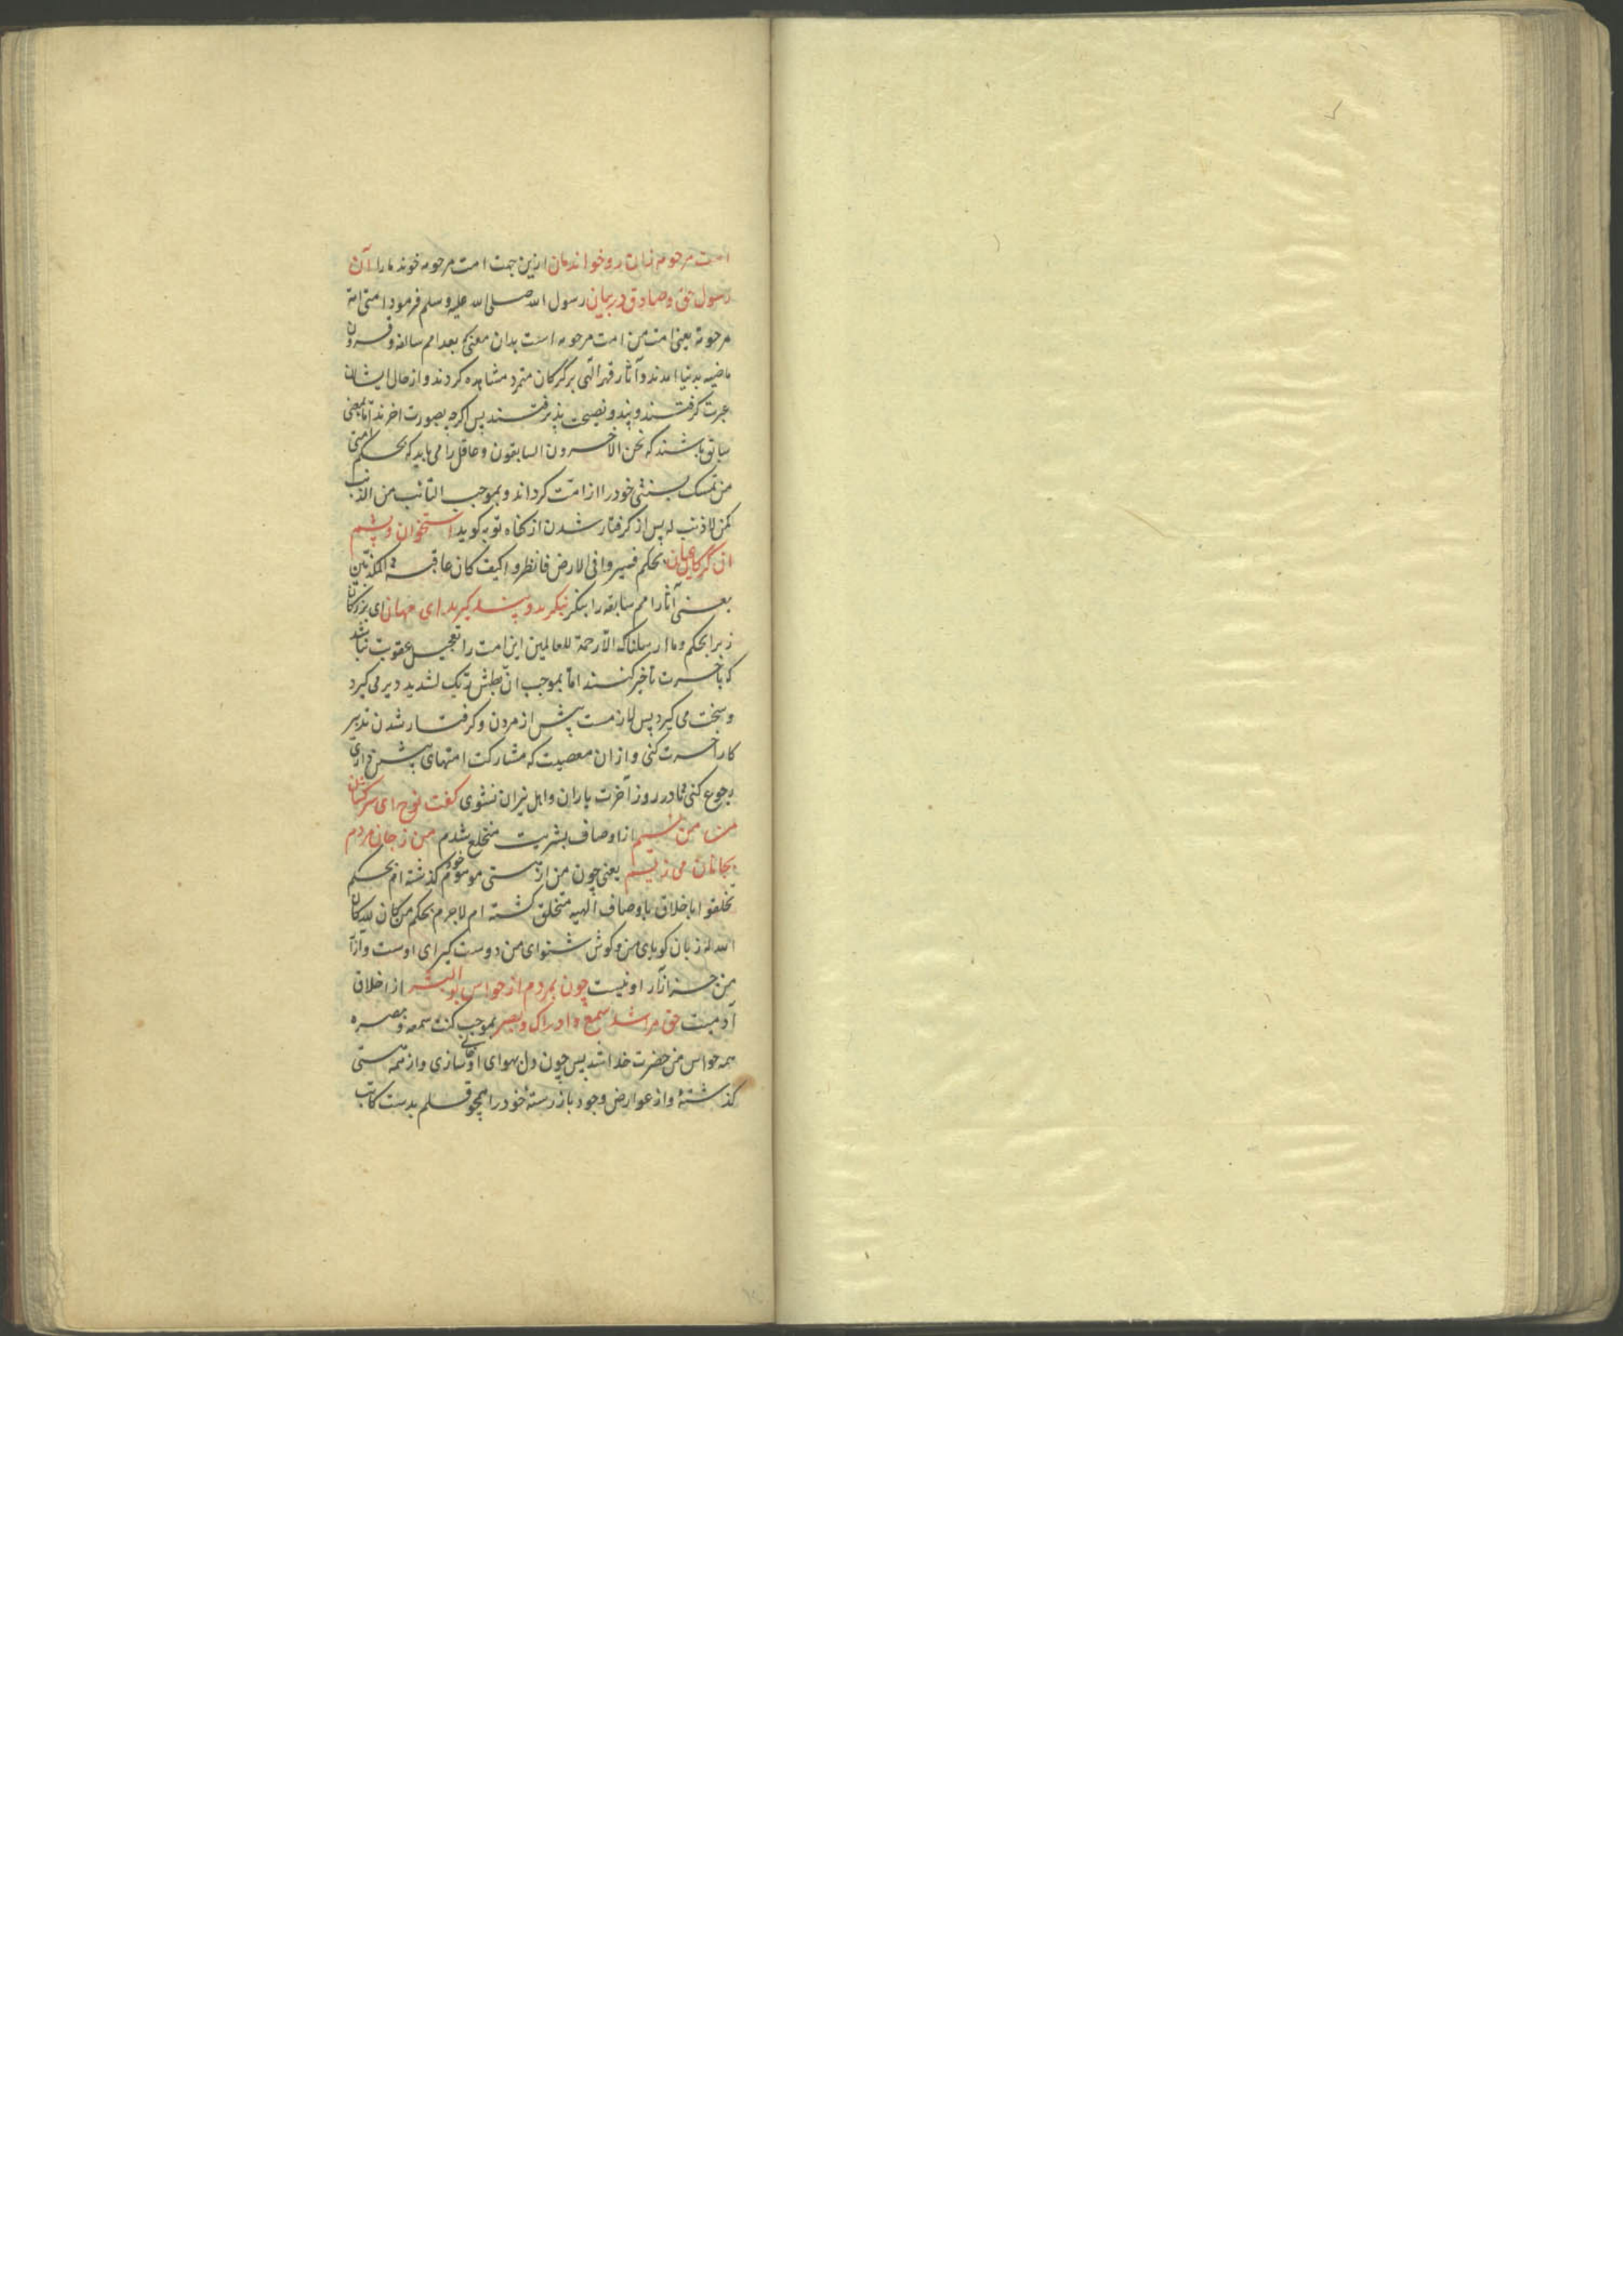 امت مرحومه زین رو خواندمان ازین جهت امت مرحومه خوند مارا آن
رسول حق و صادق در بیان رسول الله صلی الله علیه وسلم فرمود امتی امة
مرحومة یعنی امت من امت مرحومه است بدان معنی که بعد امم سالفه و قرون
ماضیه بدنیا آمدند و آثار قهر الهی بر گرگان متمرد مشاهده کردند و از حال ایشان
عبرت گرفتند و پند و نصیحت پذیرفتند پس اگرچه بصورت آخرند اما بمعنی
سابق باشند که نحن الآخرون السابقون و عاقل را می باید که بحکم امتی
من تمسک بسنتی خود را از امت گرداند و بموجب التائب من الذنب
کمن لا ذنب له پس از گرفتار شدن از گناه توبه گوید استخوان و پشم
آن گرگان عیان بحکم فسیروا فی الارض فانظروا کیف کان عاقبة المکذبین
یعنی آثار امم سابقه را بنگر بنگرید و پند گیرید ای مهان ای بزرگان
زیرا بحکم وما ارسلناک الا رحمة للعالمین این امت را تعجیل عقوبت نباشد
که بآخرت تأخیر کنند اما بموجب ان بطش ربک لشدید دیر می گیرد
و سخت می گیرد پس لازمست پیش از مردن و گرفتار شدن تدبیر
کار آخرت کنی و از ان معصیت که مشارکت امتهای پیشین داری
رجوع کنی تا در روز آخرت یاران و اهل نیران نشوی گفت نوح ای سرکشان
من من نیم از اوصاف بشریت منخلع شدم من ز جان مردم
بجانان می زیم یعنی چون من از هستی موهوم خود گذشته ام بحکم
تخلقوا باخلاق باوصاف الهیه متخلق گشته ام لاجرم بحکم من کان لله کان
الله له زبان گویای من و گوش شنوای من دوست گیرای اوست و آزار
من جز آزار او نیست چون بمردم از حواس بو البشر از اخلاق
آدمیت حق مرا شد سمع و ادراک و بصر بموجب کنت سمعه و بصره
همه حواس من حضرت خدا شد پس چون دل بهوای او فانی سازی و از همه هستی
گذشتهٔ و از عوارض وجود باز رستهٔ خود را همچو قلم بدست کاتب